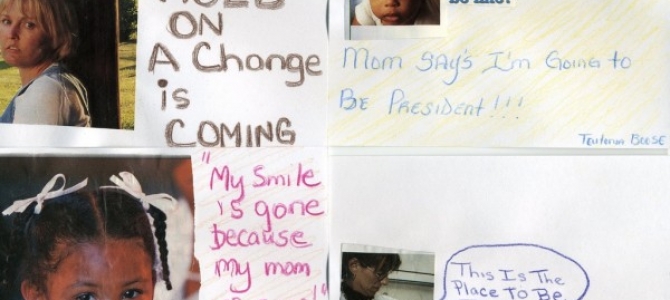 HOLD
ON
A Change
is
COMING
be like?
Mom SAy's I'm Going to
BE PRESIDENT!!!
"My Smile
is gone
because
my mom
This Is The
Place To Be